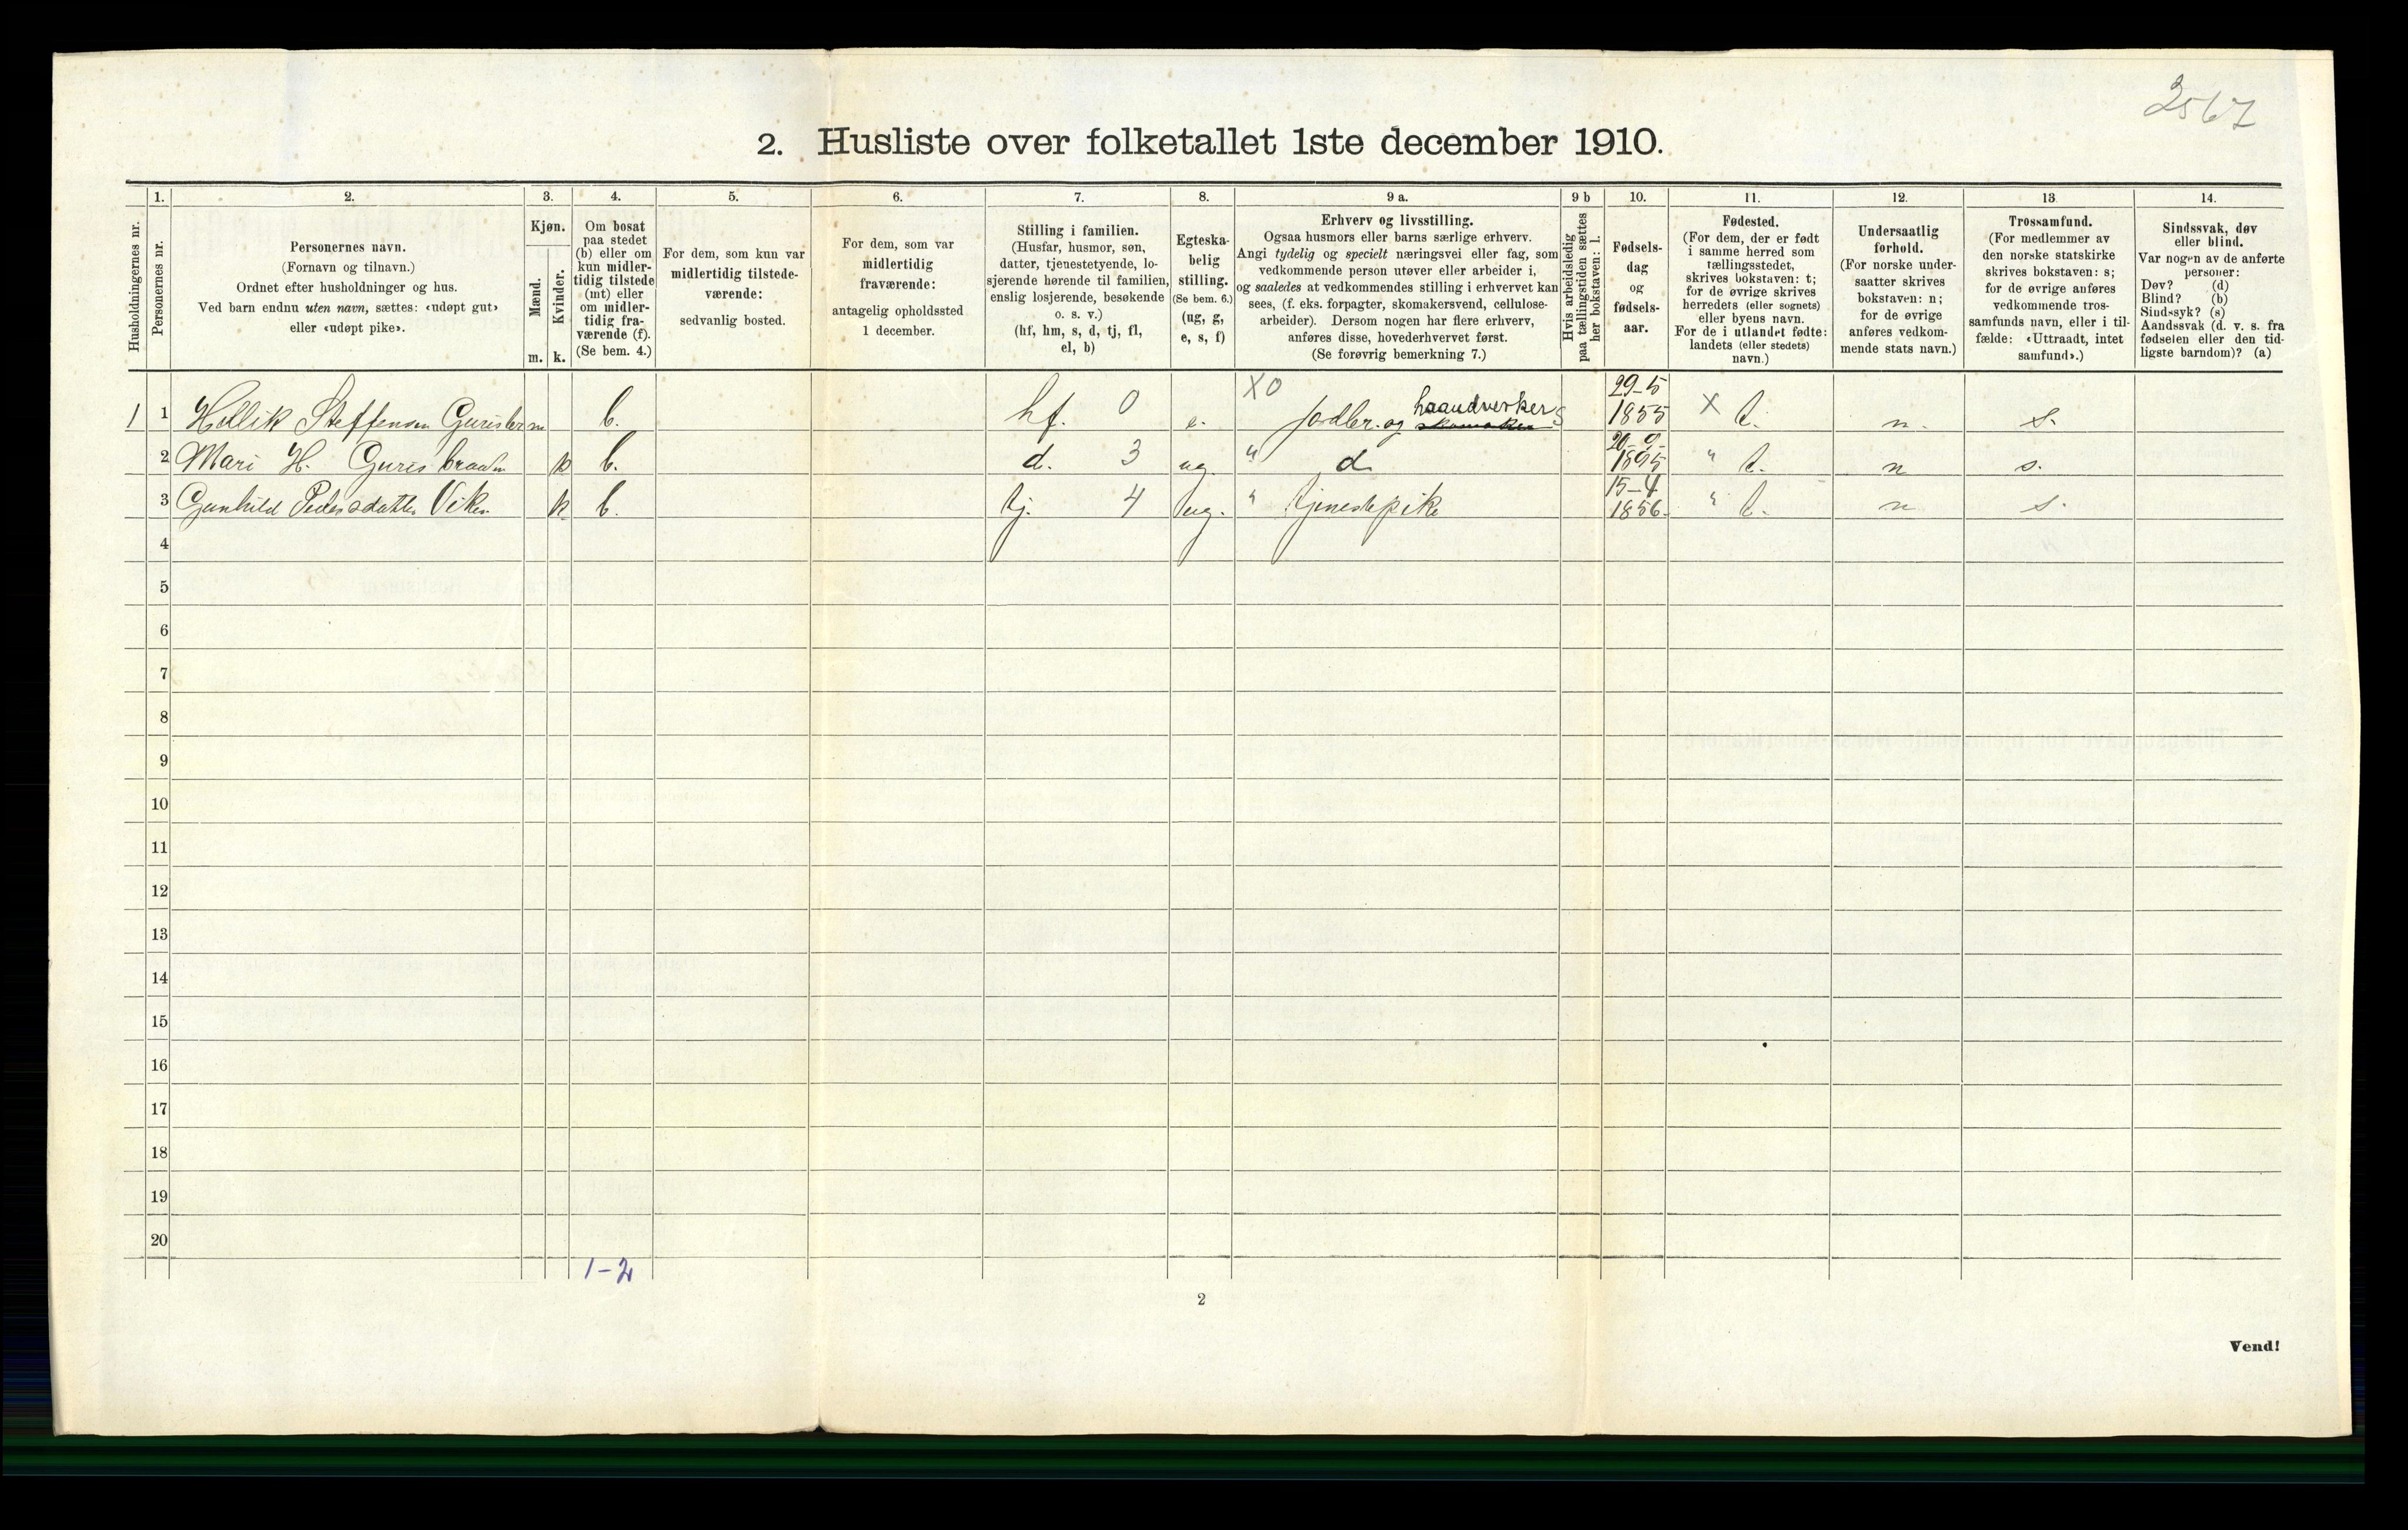 2567
2. Husliste over folketallet 1ste december 1910.
Husholdningernes nr.
1.
Personernes nr.
2.
Personernes navn.
(Fornavn og tilnavn.)
Ordnet efter husholdninger og hus.
Ved barn endnu uten navn, sættes: «udøpt gut»
eller «udøpt pike».
3.
Kjøn.
Mænd.
Kvinder.
m. k.
4.
Om bosat
paa stedet
(b) eller om
kun midler-
tidig tilstede
(mt) eller
om midler-
tidig fra-
værende (f).
(Se bem. 4.)
5.
For dem, som kun var
midlertidig tilstede-
værende:
sedvanlig bosted.
6.
For dem, som var
midlertidig
fraværende:
antagelig opholdssted
1 december.
7.
Stilling i familien.
(Husfar, husmor, søn,
datter, tjenestetyende, lo-
sjerende hørende til familien,
enslig losjerende, besøkende
o. s. v.)
(hf, hm, s, d, tj, fl,
el, b)
8.
Egteska-
belig
stilling.
(Se bem. 6.)
(ug, g,
e, s, f)
9 a.
Erhverv og livsstilling.
Ogsaa husmors eller barns særlige erhverv.
Angi tydelig og specielt næringsvei eller fag, som
vedkommende person utøver eller arbeider i,
og saaledes at vedkommendes stilling i erhvervet kan
sees, (f. eks. forpagter, skomakersvend, cellulose-
arbeider). Dersom nogen har flere erhverv,
anføres disse, hovederhvervet først.
(Se forøvrig bemerkning 7.)
9 b
Hvis arbeidsledig
paa tællingstiden sættes
her bokstaven: l.
10.
Fødsels-
dag
og
fødsels-
aar.
11.
Fødested.
(For dem, der er født
i samme herred som
tællingsstedet,
skrives bokstaven: t;
for de øvrige skrives
herredets (eller sognets)
eller byens navn.
For de i utlandet fødte:
landets (eller stedets)
navn.)
12.
Undersaatlig
forhold.
(For norske under-
saatter skrives
bokstaven: n;
for de øvrige
anføres vedkom-
mende stats navn.)
13.
Trossamfund.
(For medlemmer av
den norske statskirke
skrives bokstaven: s;
for de øvrige anføres
vedkommende tros-
samfunds navn, eller i til-
fælde: «Uttraadt, intet
samfund».)
14.
Sindssvak, døv
eller blind.
Var nogen av de anførte
personer:
Døv? (d)
Blind? (b)
Sindssyk? (s)
Aandssvak (d. v. s. fra
fødselen eller den tid-
ligste barndom)? (a)
1 1 Hellik Steffensen m b. hf. 0 e. X0 Jordbr. og haandverker 29-5 1855 X t. n. s.
2 Mari H. Gurisbraaten k b. d. 3 ug. " d 1895 " t. n s.
3 Gunhild Pedersdatter Viken k b. tj. 4 ug. " tjenestepike 15-4 1856. " t. n s.
4
5
6
7
8
9
10
11
12
13
14
15
16
17
18
19
20
1-2
2
Vend!